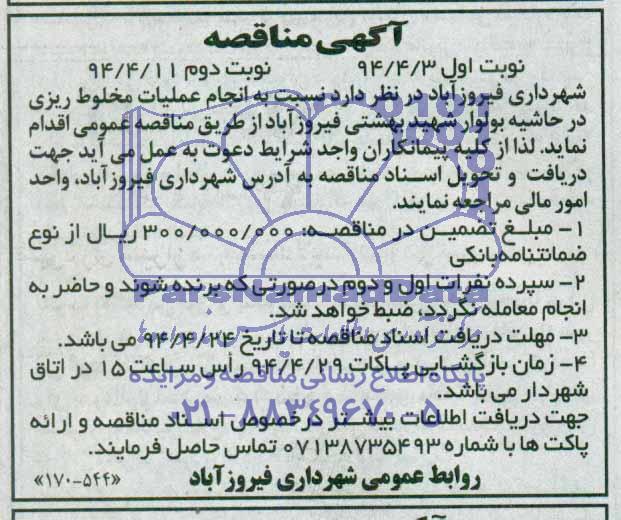 آگهی مناقصه
نوبت اول ۹۴/۴/۳ نوبت دوم ۹۴/۴/۱۱
شهرداری فیروزآباد در نظر دارد نسبت به انجام عملیات مخلوط ریزی
در حاشیه بولوار شهید بهشتی فیروزآباد از طریق مناقصه عمومی اقدام
نماید. لذا از کلیه پیمانکاران واجد شرایط دعوت به عمل می آید جهت
دریافت و تحویل اسناد مناقصه به آدرس شهرداری فیروزآباد، واحد
امور مالی مراجعه نمایند.
۱- مبلغ تضمین در مناقصه: ۳۰۰/۰۰۰/۰۰۰ ریال از نوع
ضمانتنامه بانکی
۲- سپرده نفرات اول و دوم درصورتی که برنده شوند و حاضر به
انجام معامله نگردد، ضبط خواهد شد.
۳- مهلت دریافت اسناد مناقصه تا تاریخ ۹۴/۴/۲۴ می باشد.
۴- زمان بازگشایی پاکات ۹۴/۴/۲۹ رأس ساعت ۱۵ در اتاق
شهردار می باشد.
جهت دریافت اطلاعات بیشتر درخصوص اسناد مناقصه و ارائه
پاکت ها با شماره ۰۷۱۳۸۷۳۵۴۹۳ تماس حاصل فرمایند.
روابط عمومی شهرداری فیروزآباد «۱۷۰-۵۴۴»
ParsNamadData
پایگاه اطلاع رسانی مناقصه و مزایده
۰۲۱-۸۸۳۴۹۶۷۰-۵